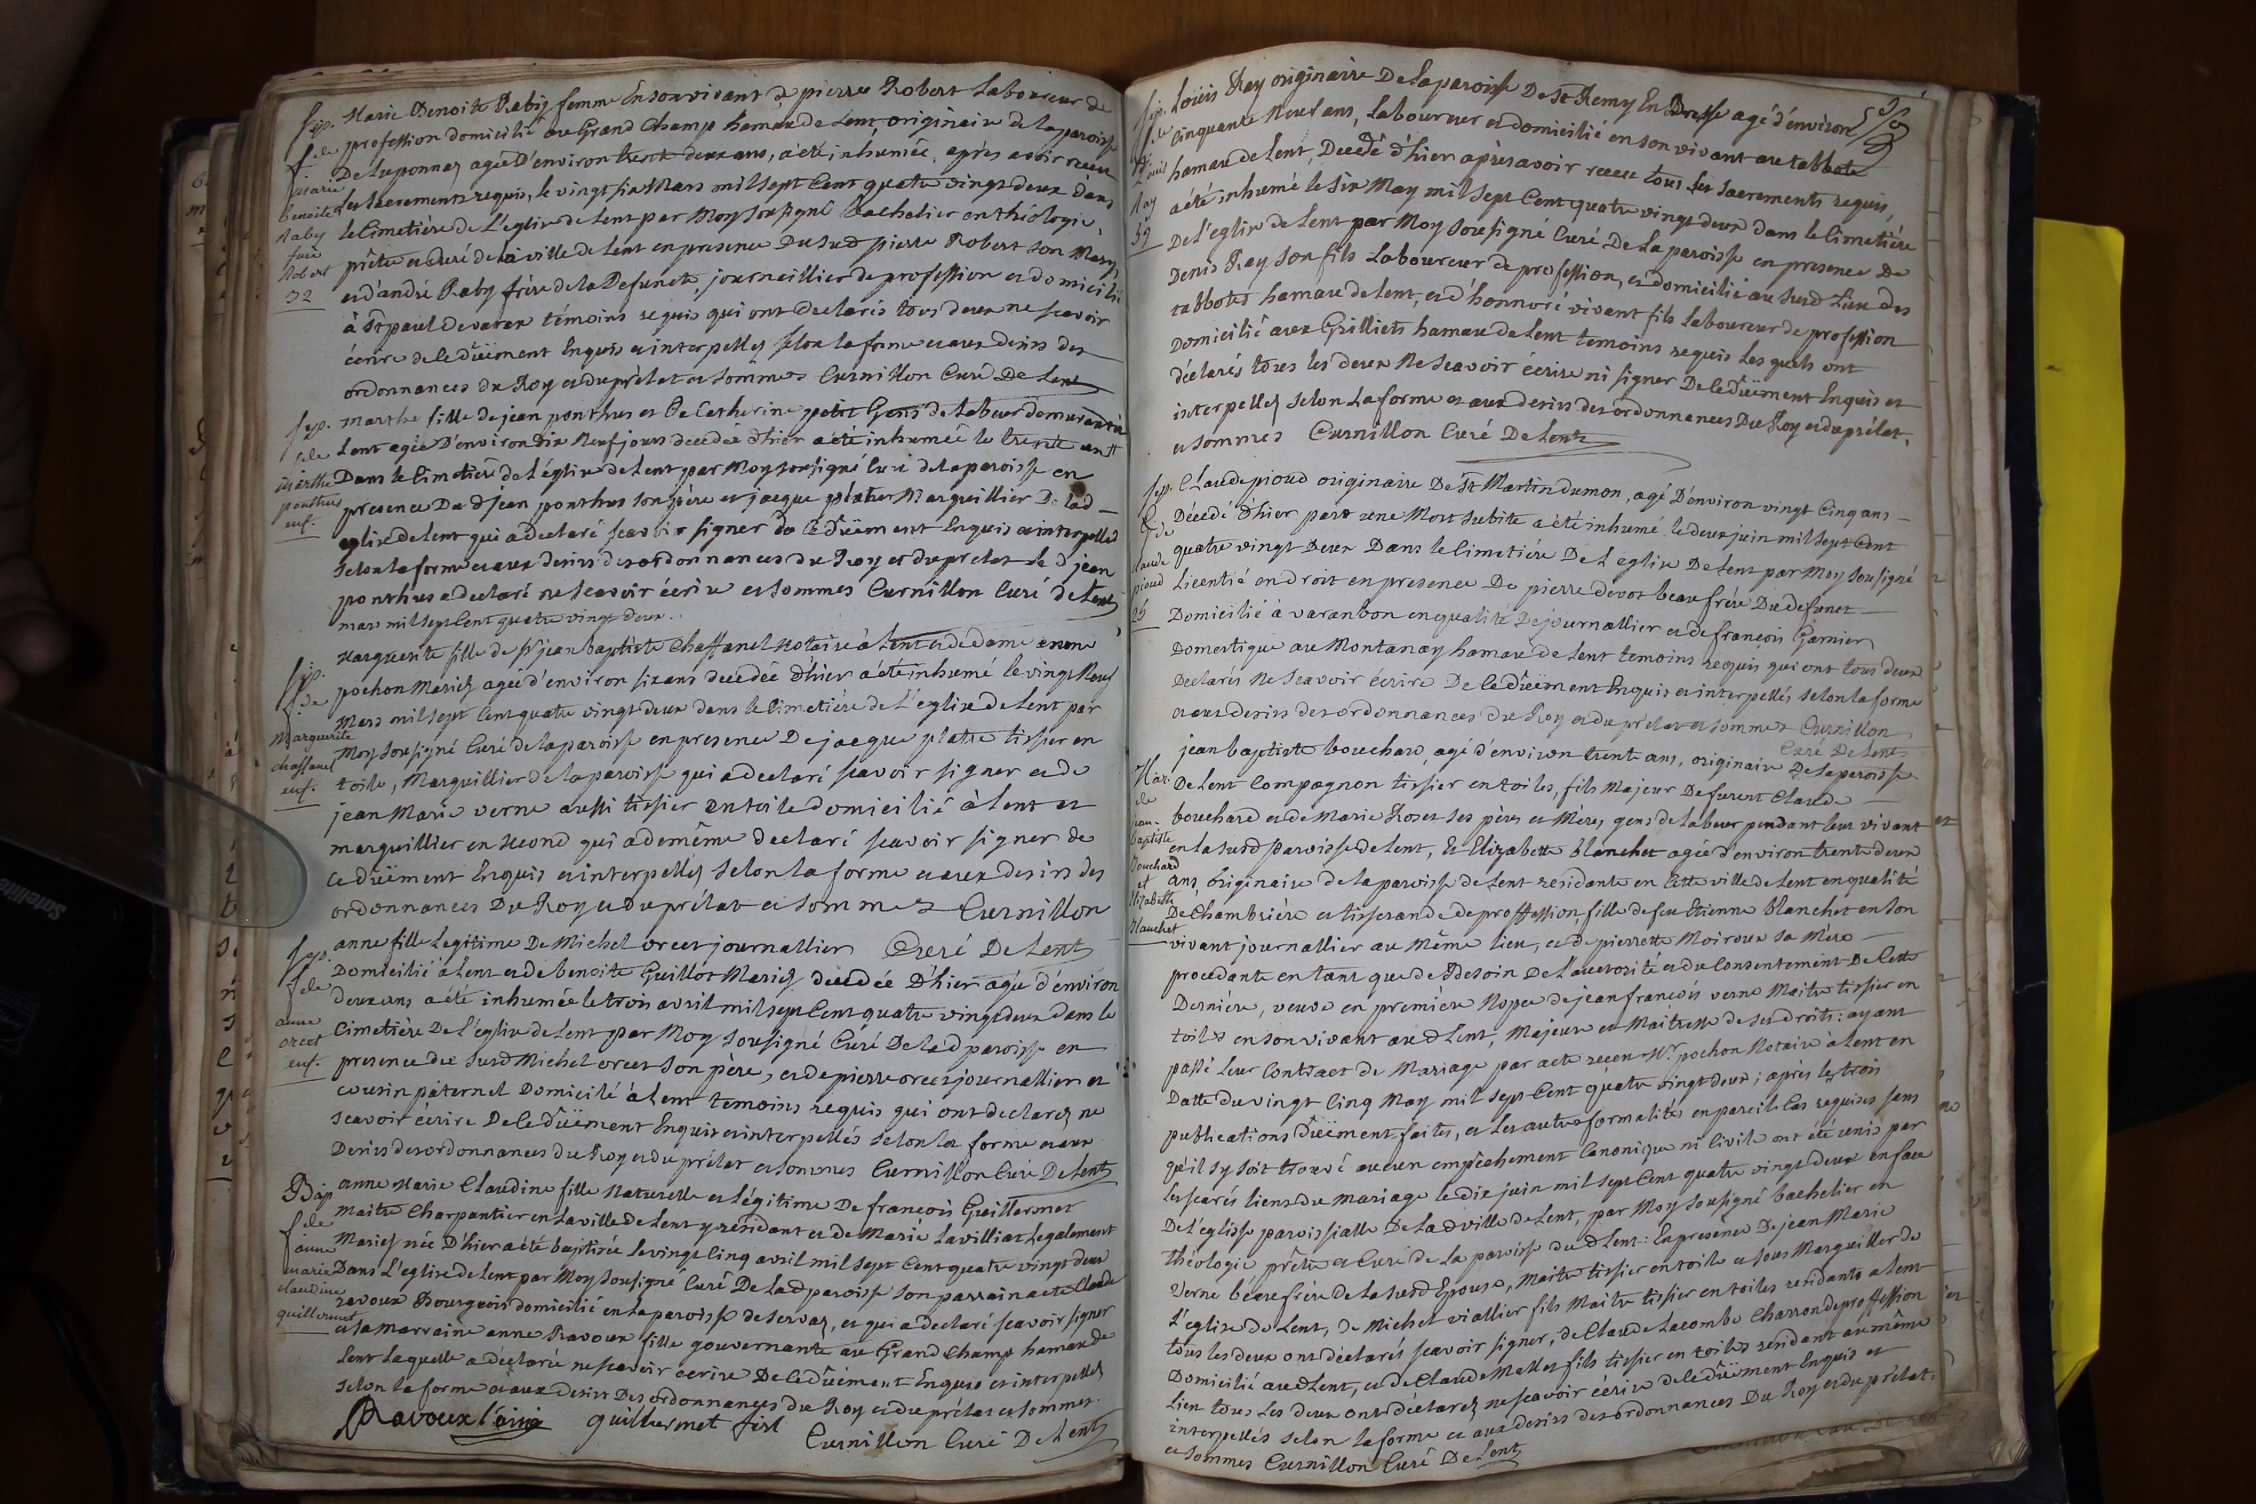 Sep.
de
marie
benoite
Raby
fme
Robert
32
Marie Benoite Rabij femme En son vivant de pierre Robert Laboureur de
profession domicilié au Grand Champ hameau de Lent, originaire de la paroisse
De Luponnaz agée D'environ trente deux ans, a été inhumée, après avoir receu
Les Sacrements requis, le vingt six Mars mil sept Cent quatre vingt deux dans
le Cimetiére de L'eglise de Lent par Moy sousigné Bachelier en théologie,
prêtre et Curé de la ville de Lent en presence Du susd pierre Robert son Mary,
et d'andré Raby frère de la Defuncte, journaillier de profession et domicilié
à St paul de varax témoins requis qui ont declarés tous deux ne scavoir
écrire de ce Düëment Enquis et interpellez selon la forme et aux desirs des
ordonnances du Roy et du prélat et sommes Curnillon Curé De Lent
Sep.
de
marthe
ponthus
enf.
Marthe fille de jean ponthus et De Catherine petit Gens de Labeur demeurant à
Lent agée D'environ Dix Neuf jours decedée d'hier a été inhumée le trente un
Dans le Cimetiere de L'église de Lent par Moy sousigné Curé de la paroisse en
presence Du d Jean ponthus son père et jacque platre Marguillier De lad
eglise de Lent qui a declaré scavoir signer de ce düëment Enquis et interpellés
selon la forme et aux desirs des ordonnances du Roy et du prélat le d jean
ponthus a declaré ne scavoir écrire et sommes Curnillon Curé de Lent
mars mil sept Cent quatre vingt deux.
Sep.
de
Marguerite
chaffanel
enf.
Marguerite fille de Sr jean baptiste Chaffanel Notaire à Lent et de dame anne
pochon Mariez agée d'environ six ans decedée d'hier a été inhumé le vingt Neuf
Mars mil sept Cent quatre vingt deux dans le Cimetiére de L'église de Lent par
Moy sousigné Curé de la paroisse en presence De jacque platre tissier en
toile, Marguillier de la paroisse qui a declaré scavoir signer et de
jean Marie verne aussi tissier en toile domicilié à Lent et
marguillier en second qui a de même declaré scavoir signer de
ce düëment Enquis et interpellez selon la forme et aux desirs des
ordonnances Du Roy et du prélat et sommes Curnillon
Curé De Lent
Sep.
de
anne
orcet
enf.
anne fille Legitime De Michel orcet journallier
Domicilié à Lent et de benoite Guillot Mariez decedée D'hier agée d'environ
deux ans a été inhumée le trois avril mil sept Cent quatre vingt deux dans le
Cimetière De L'église de Lent par Moy sousigné Curé De lad paroisse en
presence du susd Michel orcet son père, et de pierre orcet journallier et
cousin paternel Domicilé à Lent temoins requis qui ont declarez ne
scavoir écrire De ce düëment Enquis et interpellés selon la forme et aux
Desirs des ordonnances du Roy et du prélat et sommes Curnillon Curé De Lent
Bap
de
anne
marie
claudine
guillermet
anne Marie Claudine fille Naturelle et légitime De francois Guillermet
Maitre Charpantier en la ville de Lent y résidant et de Marie Lavilliat Legalement
Mariez née D'hier a été baptisée le vingt Cinq avril mil sept Cent quatre vingt deux
Dans L'eglise de Lent par Moy sousigné Curé De lad paroisse son parrain a été Claude
ravoux Bourgeois domicilié en la paroisse de servaz, et qui a declaré scavoir signer
et la Marraine anne Ravoux fille gouvernante au Grand Champ hameau de
Lent Laquelle a déclarée ne scavoir écrire De ce düëment Enquis et interpellez
selon la forme et aux desirs Des ordonnances du Roy et du prélat et sommes.
Ravoux l'ainé guillermet fils
Curnillon Curé De Lent
59
Sep.
de
Louis
Ray
59
Loüis Ray originaire De La paroisse De St Remy En Bresse agé d'environ
Cinquante Neuf ans, Laboureur et domicilié en son vivant au tabbote
hameau de Lent, Decedé d'hier après avoir receu tous les sacrements requis,
a été inhumé le six May mil sept Cent quatre vingt deux dans le Cimetiére
De L'eglise de Lent par Moy sousigné Curé De La paroisse en presence De
Denis Ray son fils Laboureur de profession, et domicilié au susd Lieu des
tabbotes hameau de Lent, et d'honnoré vivant fils Laboureur de profession
Domicilié aux Grilliets hameau de Lent temoins requis Lesquels ont
déclarés tous les deux Ne scavoir écrire ni signer De ce düëment Enquis et
interpellez selon la forme et aux desirs des ordonnances Du Roy et du prélat,
et sommes Curnillon Curé De Lent
Sep.
de
Claude
pioud
25
Claude pioud originaire De St Martin du mon, agé D'environ vingt Cinq ans
Décedé d'hier par une Mort subite a été inhumé le deux juin mil sept Cent
quatre vingt Deux Dans le Cimetiére De L'eglise De Lent par Moy sousigné
Licentié en droit en presence De pierre devot beau frère Du defunct
Domicilié à varanbon en qualité De journallier et de francois Garnier
Domestique au Montanay hameau de Lent temoins requis qui ont tous deux
Declarés Ne scavoir écrire De ce düëment Enquis et interpellés selon la forme
et aux desirs des ordonnances du Roy et du prélat et sommes Curnillon
Curé De Lent
Mar.
de
jean
baptiste
bouchard
et
Elizabette
blanchet
jean baptiste bouchard, agé d'environ trente ans, originaire De la paroisse
De Lent Compagnon tissier en toiles, fils Majeur De furent Claude
bouchard et de Marie Roset ses père et Mère, gens de Labeur pendant leur vivant
en la susd paroisse de Lent, Et Elizabette blanchet agée d'environ trente deux
ans, originaire de la paroisse de Lent residante en Cette ville de Lent en qualité
De Chambriére et tisserande de proffession, fille de feu Etienne blanchet en son
vivant journallier au Même lieu, et de pierrette Moiroux sa Mère
procedante en tant que de Besoin De L'autorité et du Consentement De Cette
Derniére, veuve en première Nopce de jean francois verne Maitre tissier en
toiles en son vivant aud Lent, Majeure et Maitresse de ses droits: ayant
passé Leur Contract de Mariage par acte receu Mr pochon Notaire à Lent en
Datte du vingt Cinq May mil sept Cent quatre vingt deux; après les trois
publications düëment faites, et Les autres formalités en pareils Cas requises sans
qu'il s'y soit trouvé aucun empêchement Canonique ni Civile ont été unis par
Les sacrés liens du mariage le dix juin mil sept Cent quatre vingt deux en face
De L'église paroissialle De lad ville de Lent, par Moy sousigné bachelier en
théologie prêtre et Curé de La paroisse dud Lent: En presence De jean Marie
Verne béau frére de la susd Epouse, Maitre tissier en toile et sous Marguiller de
L'église de Lent, De Michel viallier fils Maitre tissier en toiles residants a Lent
tous les deux ont déclarés scavoir signer, de Claude Lacombe Charron de proffession
Domicilié aud Lent, et de Claude Mallet fils tissier en toiles residant au même
Lieu tous Les deux ont déclarez ne scavoir écrire de ce düëment Enquis et
interpellés selon la forme et aux desirs des ordonnances Du Roy et du prélat,
et sommes Curnillon Curé De Lent
Satellite